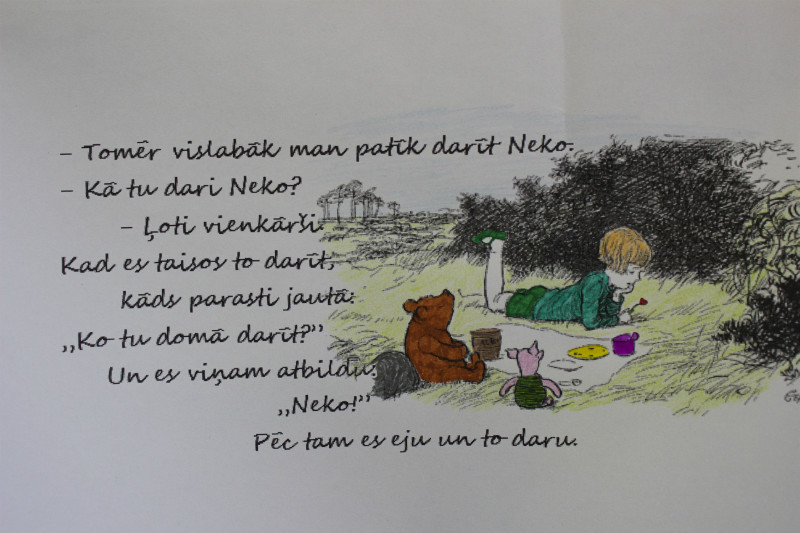 – Tomēr vislabāk man patīk darīt Neko.
– Kā tu dari Neko?
– Ļoti vienkārši.
Kad es taisos to darīt,
kāds parasti jautā:
„Ko tu domā darīt?”
Un es viņam atbildu:
„Neko!”
Pēc tam es eju un to daru.